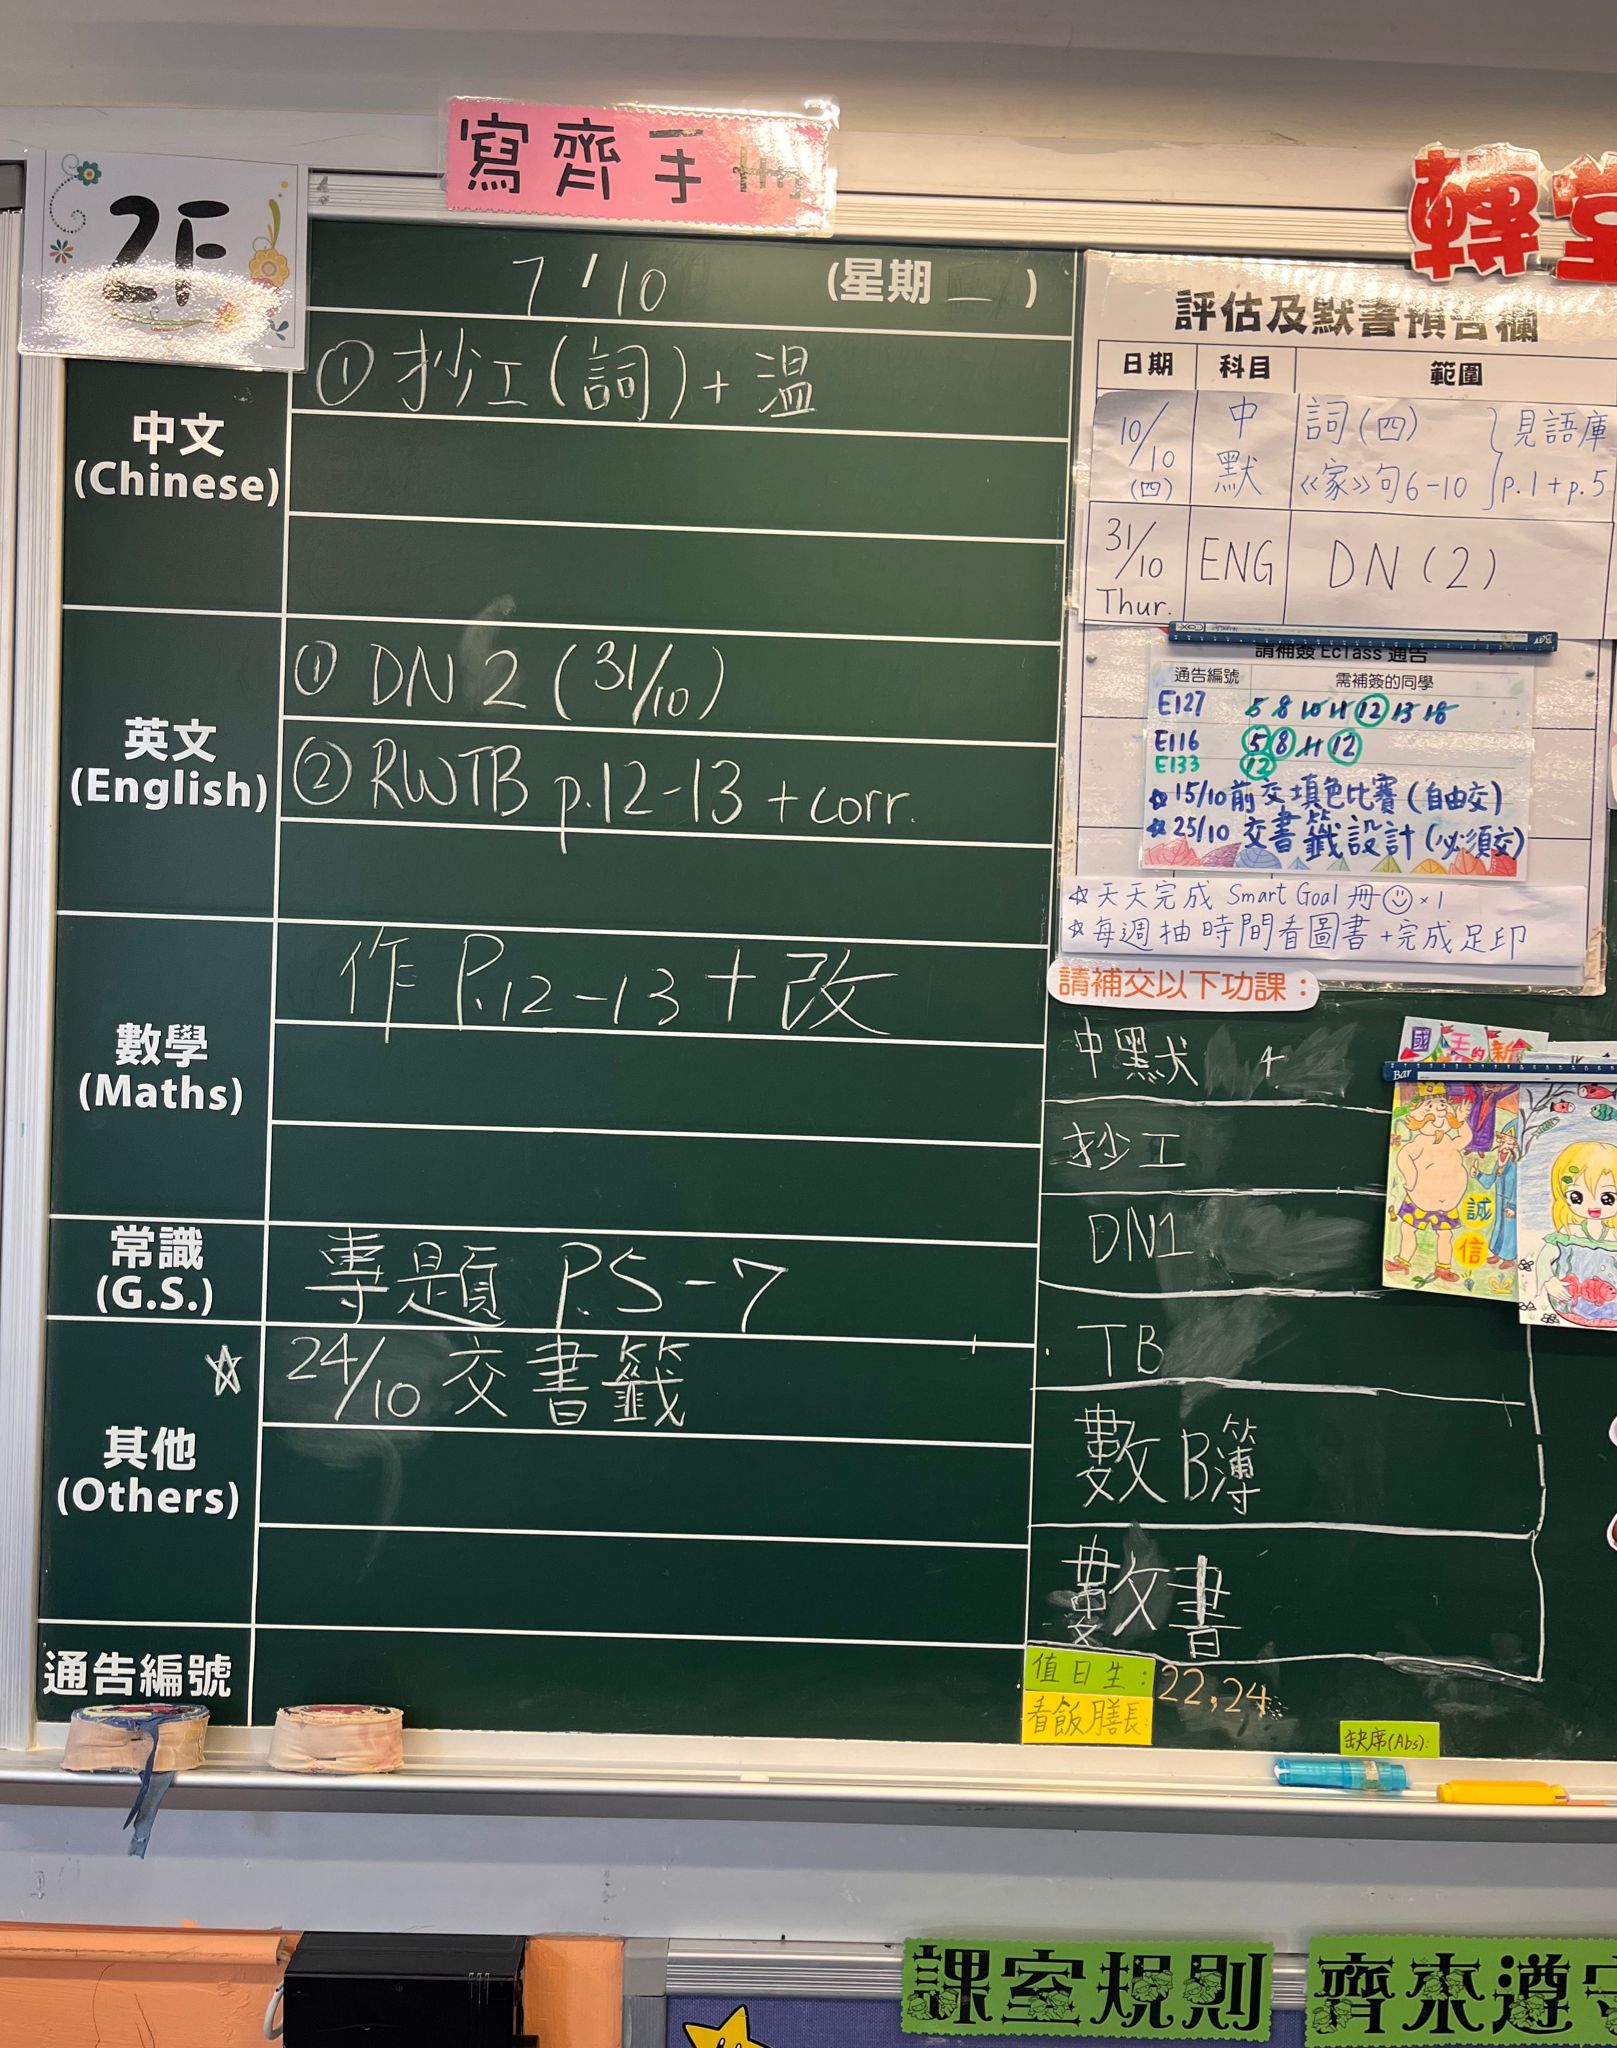 寫齊手冊
2F
7/10 (星期一)
中文
(Chinese)
① 抄工(詞)+溫
英文
(English)
① DN 2 (31/10)
② RWTB p.12-13 + corr.
數學
(Maths)
作 P.12-13 + 改
常識
(G.S.)
專題 P.5-7
其他
(Others)
☆ 24/10 交書籤
通告編號
轉堂
評估及默書預告欄
日期 科目 範圍
10/10 (四) 中默 詞(四) 《家》句6-10 } 見語庫 p.1+p.5
31/10 Thur. ENG DN (2)
請補簽 Eclass 通告
通告編號 需補簽的同學
E127 5 8 10 11 12 13 18
E116 5 8 11 12
E133 12
☆ 15/10前交填色比賽(自由交)
☆ 25/10 交書籤設計(必須交)
☆ 天天完成 Smart Goal 冊☺×1
☆ 每週抽時間看圖書+完成足印
請補交以下功課:
中默 4
抄工
DN1
TB
數B簿
數書
國王的新
誠信
值日生: 22,24
看飯膳長:
缺席(Abs):
課室規則
齊來遵守